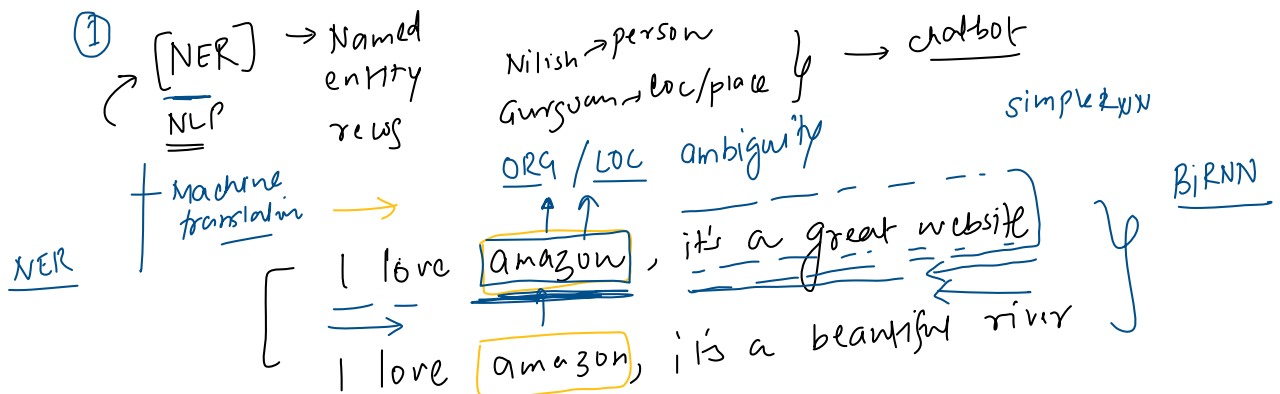 1
[NER] → Named entity recog
NLP
Nilish → person
Gurguan → loc/place
→ chatbot
simple RNN
ORG / LOC ambiguity
BiRNN
Machine
translation →
NER
I love amazon, it's a great website
I love amazon, it's a beautiful river